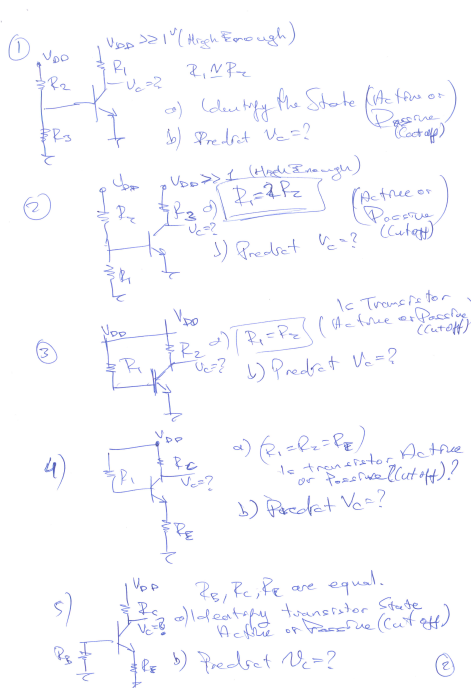 1 VDD >> 1V (High Enough)
VDD
R1
R2
Vc=?
R1 ≅ R2
R3
a) Identify the State (Active or Passive (Cutoff)
b) Predict Vc=?
2
VDD
VDD >> 1 (High Enough)
R2
R3
a) R1=2R2
(Active or Passive (Cutoff)
Vc=?
b) Predict Vc=?
R1
3
VDD
VDD
R1
R2
Vc=?
a) (R1=R2) (Is Transistor Active or Passive (Cutoff)
b) Predict Vc=?
4)
VDD
R1
RC
Vc=?
RE
a) (R1=R2=RE)
Is transistor Active
or Passive (Cutoff)?
b) Predict Vc=?
5)
VDD
RC
Vc=?
RB
RE
RB, RC, RE are equal.
a) Identify transistor State
Active or Passive (Cutoff)
b) Predict Vc=?
2